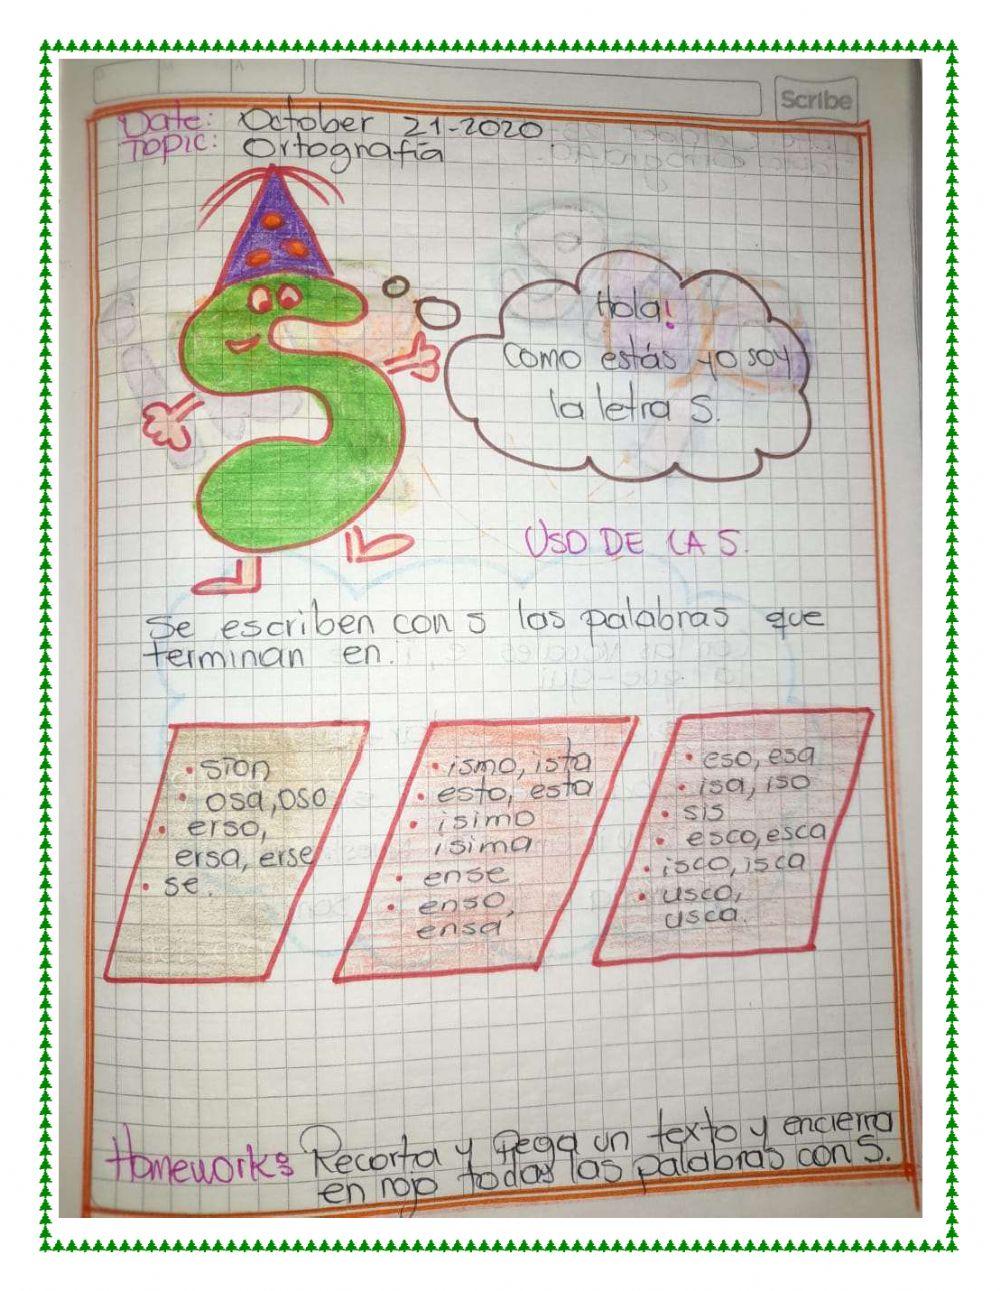 D
M
A
Scribe
Date: October 21-2020
Topic: Ortografía
Hola!
como estás yo soy
la letra S.
USO DE LA S.
Se escriben con s las palabras que
terminan en.
• sion
• osa, oso
• erso,
ersa, erse
• se.
• ismo, ista
• esto, esta
• isimo
isima
• ense
• enso,
ensa
• eso, esa
• isa, iso
• sis
• esco, esca
• isco, isca
• usco,
usca.
Homework: Recorta y Pega un texto y encierra
en rojo todas las palabras con S.